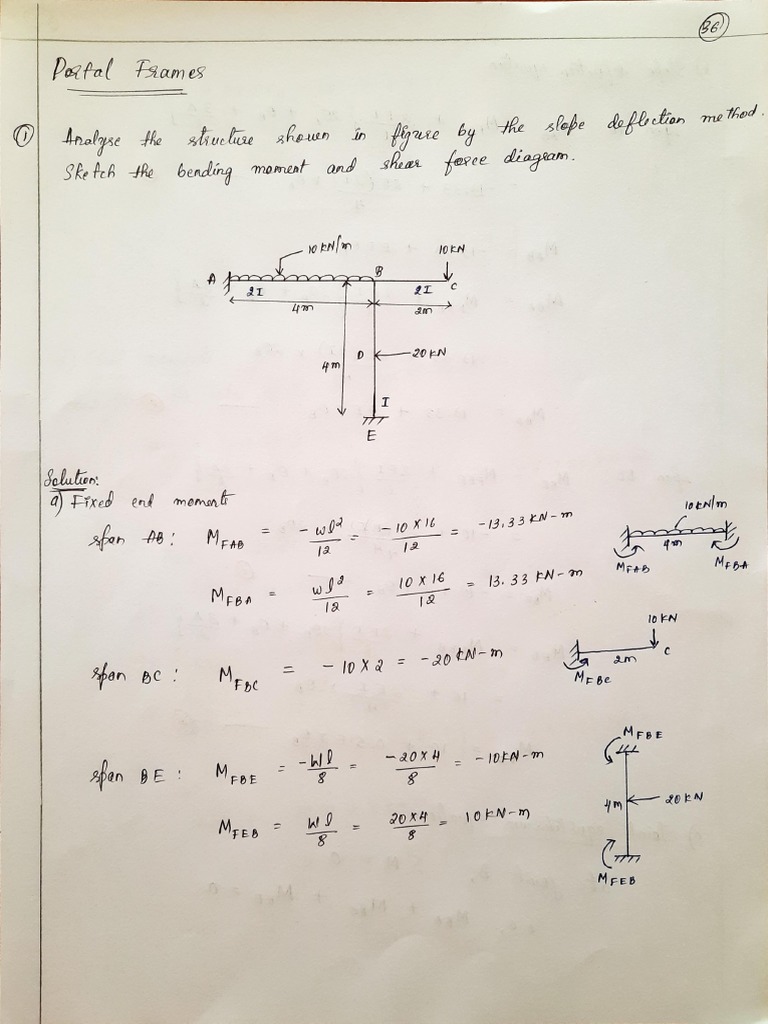 36
Portal Frames
① Analyse the structure shown in figure by the slope deflection method.
Sketch the bending moment and shear force diagram.
10 kN/m
10 kN
A
B
C
2I
2I
4m
2m
4m
D
20 kN
I
E
Solution:
a) Fixed end moments
span AB: M_FAB = -wl²/12 = -10 × 16/12 = -13.33 kN-m
M_FBA = wl²/12 = 10 × 16/12 = 13.33 kN-m
10 kN/m
4m
M_FAB
M_FBA
span BC: M_FBC = -10 × 2 = -20 kN-m
10 kN
2m
C
M_FBC
span BE: M_FBE = -Wl/8 = -20 × 4/8 = -10 kN-m
M_FEB = Wl/8 = 20 × 4/8 = 10 kN-m
M_FBE
4m
20 kN
M_FEB